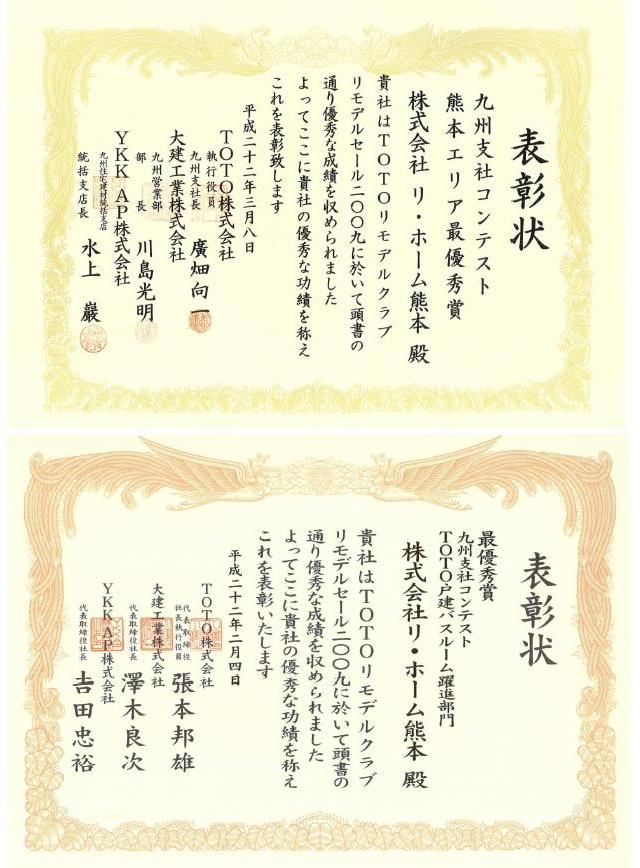 表彰状
九州支社コンテスト
熊本エリア最優秀賞
株式会社 リ・ホーム熊本 殿
貴社はTOTOリモデルクラブ
リモデルセール二〇〇九に於いて頭書の
通り優秀な成績を収められました
よってここに貴社の優秀な功績を称え
これを表彰致します
平成二十二年三月八日
TOTO株式会社
執行役員
九州支社長 廣畑向一
大建工業株式会社
九州営業部
部長 川島光明
YKK AP株式会社
九州住宅建材統括支店
統括支店長 水上 巖
表彰状
最優秀賞
九州支社コンテスト
TOTO戸建バスルーム躍進部門
株式会社リ・ホーム熊本 殿
貴社はTOTOリモデルクラブ
リモデルセール二〇〇九に於いて頭書の
通り優秀な成績を収められました
よってここに貴社の優秀な功績を称え
これを表彰いたします
平成二十二年二月四日
TOTO株式会社
代表取締役
社長執行役員 張本邦雄
大建工業株式会社
代表取締役社長 澤木良次
YKK AP株式会社
代表取締役社長 吉田忠裕